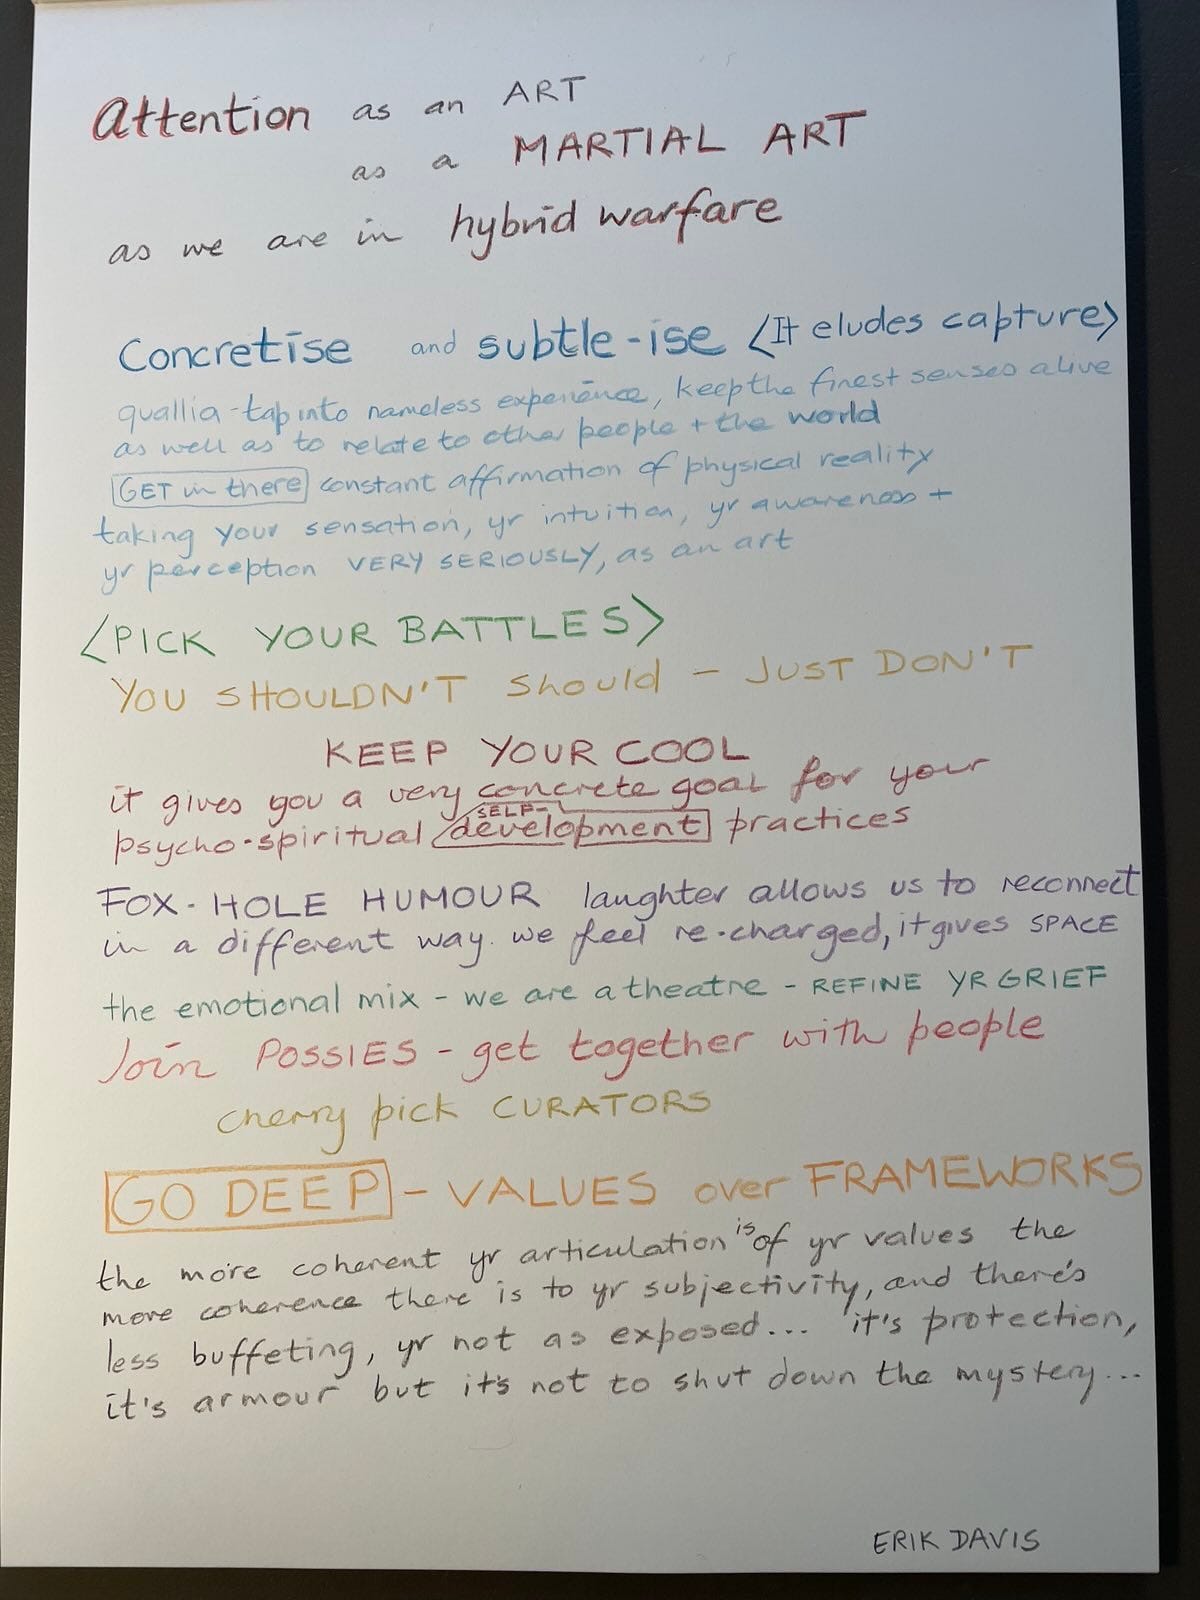 Attention as an ART
as a MARTIAL ART
as we are in hybrid warfare
Concretise and subtle-ise <It eludes capture>
quallia-tap into nameless experience, keep the finest senses alive
as well as to relate to other people + the world
GET in there constant affirmation of physical reality
taking your sensation, yr intuition, yr awareness +
yr perception VERY SERIOUSLY, as an art
<PICK YOUR BATTLES>
YOU SHOULDN'T Should - JUST DON'T
KEEP YOUR COOL
it gives you a very concrete goal for your
psycho-spiritual SELF-development practices
FOX-HOLE HUMOUR laughter allows us to reconnect
in a different way. we feel re-charged, it gives SPACE
the emotional mix - we are a theatre - REFINE YR GRIEF
Join POSSIES - get together with people
cherry pick CURATORS
GO DEEP - VALUES over FRAMEWORKS
the more coherent yr articulation is of yr values the
more coherence there is to yr subjectivity, and there's
less buffeting, yr not as exposed... it's protection,
it's armour but it's not to shut down the mystery...
ERIK DAVIS